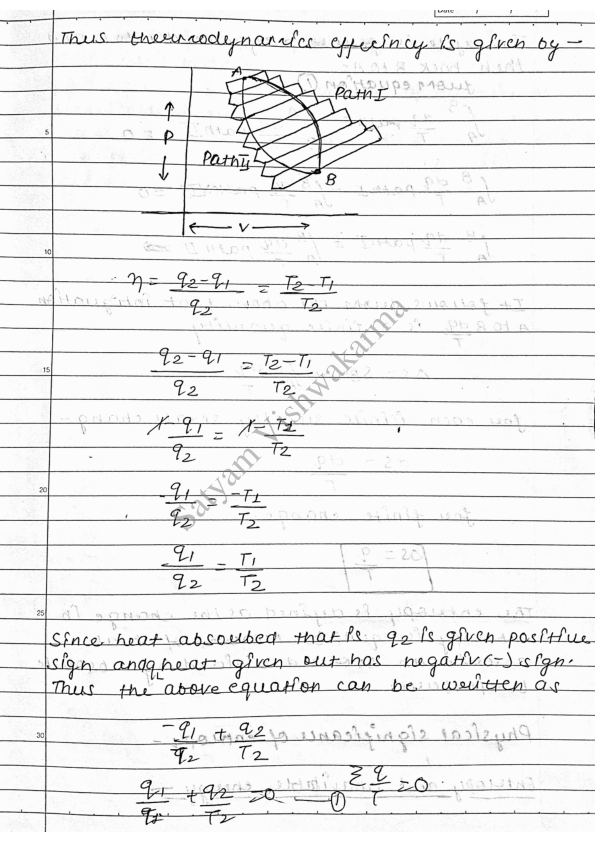 Date
Thus thermodynamics efficiency is given by-
A
Path I
↑
P
↓
Path II
B
← V →
η = q2-q1/q2 = T2-T1/T2
q2-q1/q2 = T2-T1/T2
1-q1/q2 = 1-T1/T2
-q1/q2 = -T1/T2
q1/q2 = T1/T2
Since heat absorbed that is q2 is given positive
sign and q1 heat given out has negativ (-) sign.
Thus the above equation can be written as
-q1/q2 + q2/T2
q1/q2 + q2/T2 = 0 — ① Σ q/T = 0
5
10
15
20
25
30
Satyam Vishwakarma